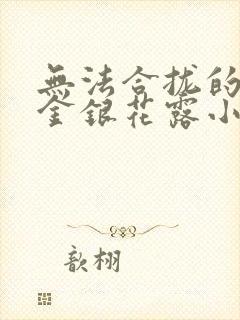 無法合拢的
金銀花露小
歆栩